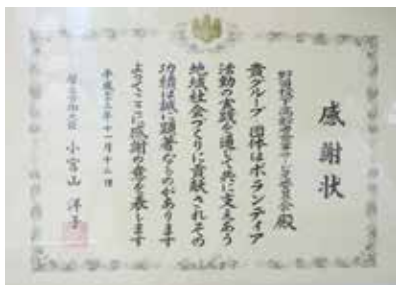 感謝状
殿
貴グループ・団体はボランティア
活動の実践を通して共に支えあう
地域社会づくりに貢献されその
功績は誠に顕著なものがあります
よってここに感謝の意を表します
平成二十三年十一月十二日
厚生労働大臣 小宮山 洋子